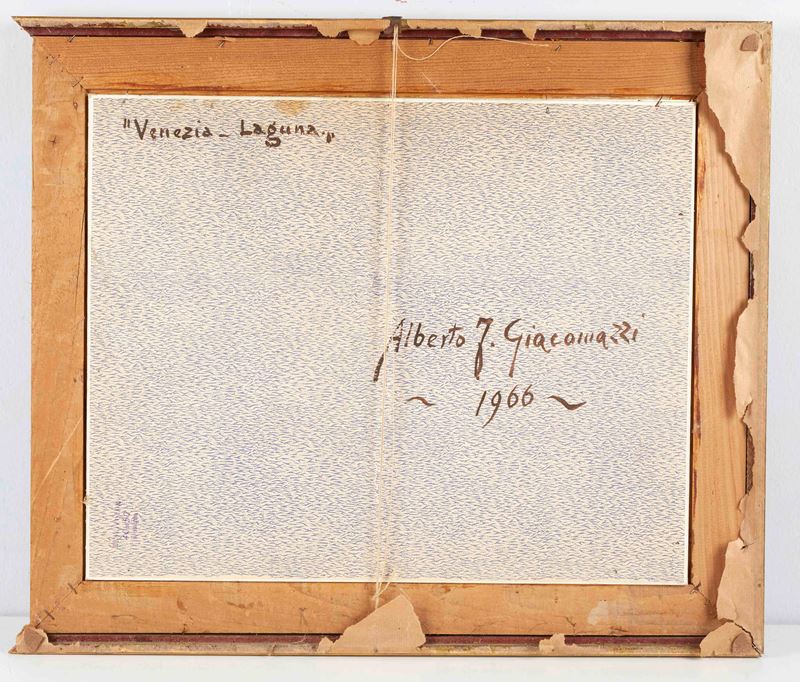 "Venezia - Laguna."
Alberto J. Giacomazzi
~ 1966 ~